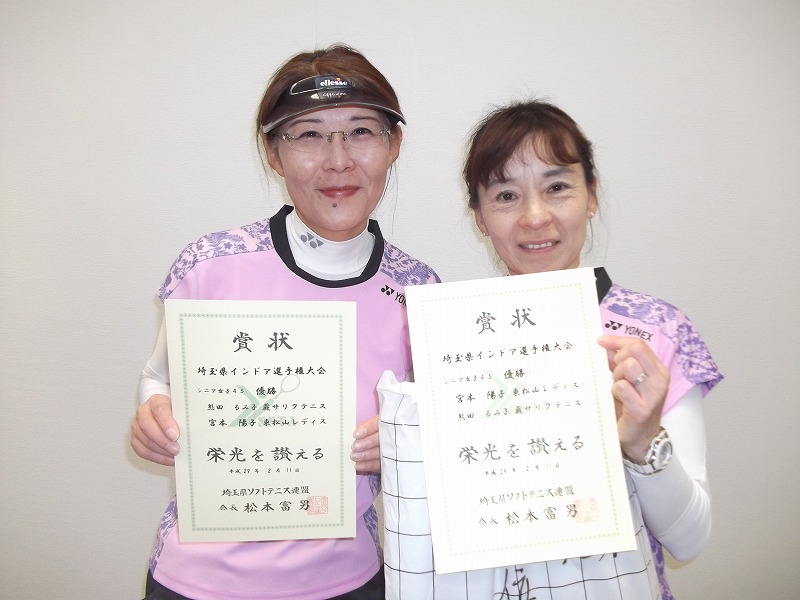 ellesse
YONEX
YONEX
賞状
埼玉県インドア選手権大会
シニア女子45 優勝
熊田 るみ子 蕨サリフテニス
宮本 陽子 東松山レディス
栄光を讃える
平成29年 2月 11日
埼玉県ソフトテニス連盟
会長 松本富男
賞状
埼玉県インドア選手権大会
シニア女子45 優勝
宮本 陽子 東松山レディス
熊田 るみ子 蕨サリフテニス
栄光を讃える
平成29年 2月 11日
埼玉県ソフトテニス連盟
会長 松本富男